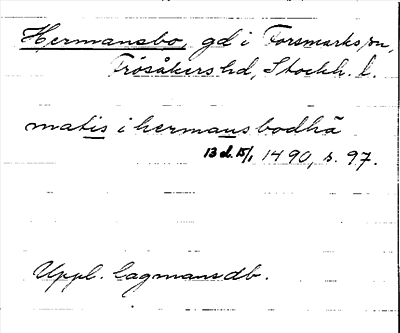 Hermansbo, gd i Forsmarks sn,
Frösåkers hd, Stockh. l.
matis i hermansbodhā
13 d. 15/1 1490, s. 97.
Uppl. lagmansdb.